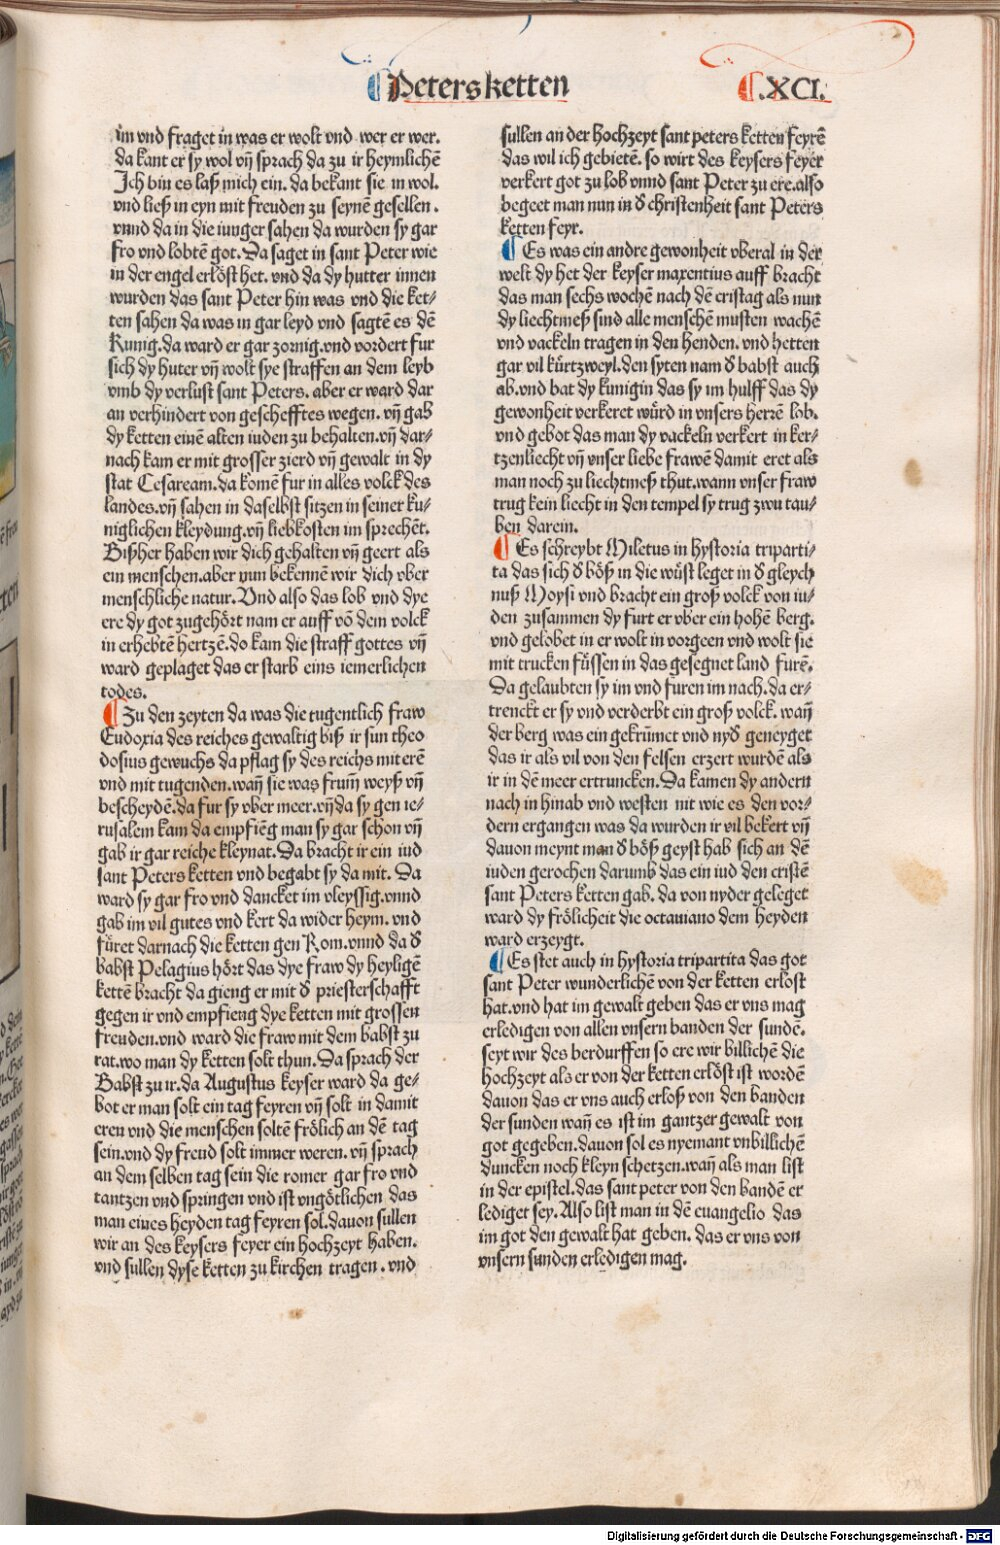 Petersketten
.XCI.
im vnd fraget in was er wolt vnd wer er wer.
da kant er sy wol vn̄ sprach da zu ir heymlichē
Ich bin es laß mich ein. da bekant sie in wol.
vnd ließ in eyn mit freuden zu seynē gesellen.
vnnd da in die iunger sahen da wurden sy gar
fro vnd lobtē got. Da saget in sant Peter wie
in der engel erlöst het. vnd da dy hutter innen
wurden das sant Peter hin was vnd die ket⸗
ten sahen da was in gar leyd vnd sagtē es dē
Kunig. da ward er gar zornig. vnd vordert fur
sich dy huter vn̄ wolt sye straffen an dem leyb
vmb dy verlust sant Peters. aber er ward dar
an verhindert von geschefftes wegen. vn̄ gab
dy ketten einē alten iuden zu behalten. vn̄ dar⸗
nach kam er mit grosser zierd vn̄ gewalt in dy
stat Cesaream. da komē fur in alles volck des
landes. vn̄ sahen in daselbst sitzen in seiner ku⸗
niglichen kleydung. vn̄ liebkosten im sprechēt.
Bißher haben wir dich gehalten vn̄ geert als
ein menschen. aber nun bekennē wir dich vber
menschliche natur. Vnd also das lob vnd dye
ere dy got zugehört nam er auff vō dem volck
in erhebtē hertzē. do kam die straff gottes vn̄
ward geplaget das er starb eins iemerlichen
todes.
Zu den zeyten da was die tugentlich fraw
Eudoxia des reiches gewaltig biß ir sun theo
dosius gewuchs da pflag sy des reichs mit erē
vnd mit tugenden. wan̄ sie was frum̄ weyß vn̄
bescheydē. da fur sy vber meer. vn̄ da sy gen ie⸗
rusalem kam da empfiēg man sy gar schon vn̄
gab ir gar reiche kleynat. Da bracht ir ein iud
sant Peters ketten vnd begabt sy da mit. Da
ward sy gar fro vnd dancket im vleyssig. vnnd
gab im vil gutes vnd kert da wider heym. vnd
füret darnach die ketten gen Rom. vnnd da d̄
babst Pelagius hört das dye fraw dy heyligē
kettē bracht da gieng er mit d̄ priesterschafft
gegen ir vnd empfieng dye ketten mit grossen
freuden. vnd ward die fraw mit dem babst zu
rat. wo man dy ketten solt thun. Da sprach der
Babst zu ir. da Augustus keyser ward da ge⸗
bot er man solt ein tag feyren vn̄ solt in damit
eren vnd die menschen soltē frölich an dē tag
sein. vnd dy freud solt immer weren. vn̄ sprach
an dem selben tag sein die romer gar fro vnd
tantzen vnd springen vnd ist vngötlichen das
man eines heyden tag feyren sol. dauon sullen
wir an des keysers feyer ein hochzeyt haben.
vnd sullen dyse ketten zu kirchen tragen. vnd
sullen an der hochzeyt sant peters ketten feyrē
das wil ich gebietē. so wirt des keysers feyer
verkert got zu lob vnnd sant Peter zu ere. also
begeet man nun in d̄ christenheit sant Peters
ketten feyr.
Es was ein andre gewonheit vberal in der
welt dy het der keyser maxentius auff bracht
das man sechs wochē nach dē cristag als nun
dy liechtmeß sind alle menschē musten wachē
vnd vackeln tragen in den henden. vnd hetten
gar vil kürtzweyl. den syten nam d̄ babst auch
ab. vnd bat dy kunigin das sy im hulff das dy
gewonheit verkeret würd in vnsers herrē lob.
vnd gebot das man dy vackeln verkert in ker⸗
tzenliecht vn̄ vnser liebe frawē damit eret als
man noch zu liechtmeß thut. wann vnser fraw
trug kein liecht in den tempel sy trug zwu tau⸗
ben darein.
Es schreybt Miletus in hystoria triparti⸗
ta das sich d̄ böß in die wüst leget in d̄ gleych
nuß Moysi vnd bracht ein groß volck von iu⸗
den zusammen dy furt er vber ein hohē berg.
vnd gelobet in er wolt in vorgeen vnd wolt sie
mit trucken füssen in das gesegnet land furē.
Da gelaubten sy im vnd furen im nach. da er⸗
trenckt er sy vnd verderbt ein groß volck. wan̄
der berg was ein gekrümet vnd nyd̄ geneyget
das ir als vil von den felsen erzert wurdē als
ir in dē meer ertruncken. Da kamen dy andern
nach in hinab vnd westen nit wie es den vor⸗
dern ergangen was da wurden ir vil bekert vn̄
dauon meynt man d̄ böß geyst hab sich an dē
iuden gerochen darumb das ein iud den cristē
sant Peters ketten gab. da von nyder geleget
ward dy frölicheit die octauiano dem heyden
ward erzeygt.
Es stet auch in hystoria tripartita das got
sant Peter wunderlichē von der ketten erlöst
hat. vnd hat im gewalt geben das er vns mag
erledigen von allen vnsern banden der sundē.
seyt wir des berdurffen so ere wir billichē die
hochzeyt als er von der ketten erlöst ist wordē
dauon das er vns auch erloß von den banden
der sunden wan̄ es ist im gantzer gewalt von
got gegeben. dauon sol es nyemant vnbillichē
duncken noch kleyn schetzen. wan̄ als man list
in der epistel. das sant peter von den bandē er
lediget sey. Also list man in dē euangelio das
im got den gewalt hat geben. das er vns von
vnsern sunden erledigen mag.
Digitalisierung gefördert durch die Deutsche Forschungsgemeinschaft - DFG